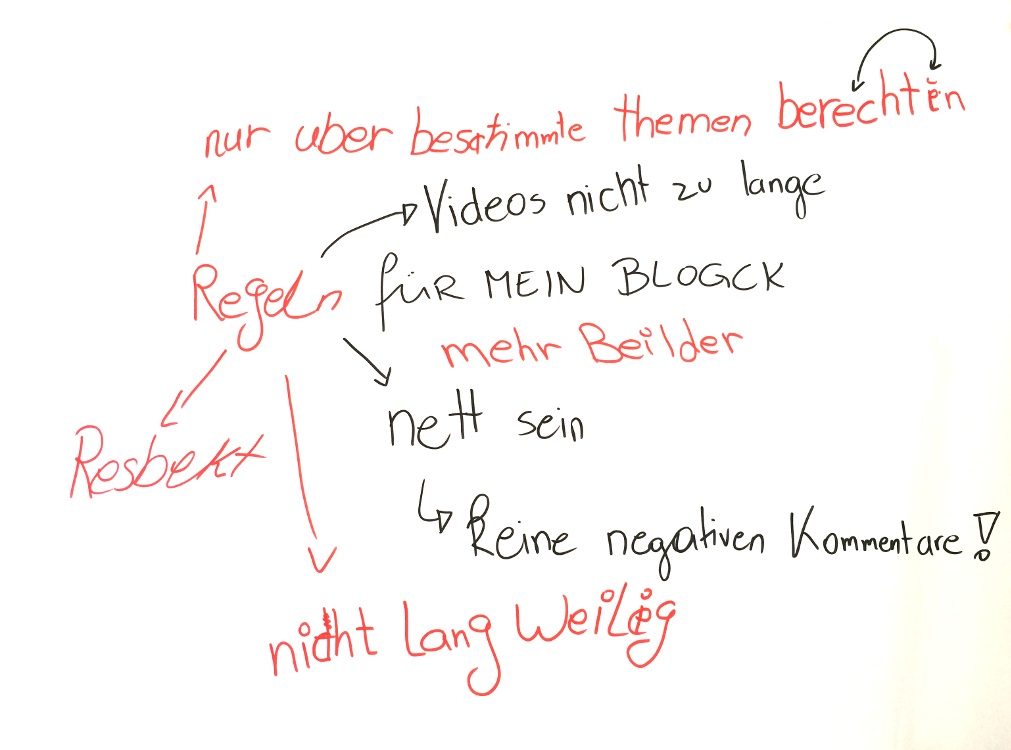 nur uber bestimmte themen berechten
Videos nicht zu lange
Regeln für MEIN BLOGCK
mehr Beilder
nett sein
Resbekt
Keine negativen Kommentare!
nicht Lang Weilig